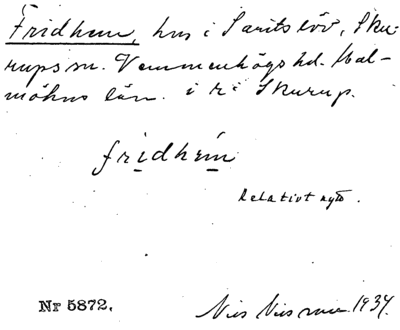 Fridhem, hus i Saritslöv, Sku-
rups sn. Vemmenhögs hd. Mal-
möhus län. i r i Skurup.
fridhem
Relativt nytt.
Nr 5872. Nils Nilsson 1934.